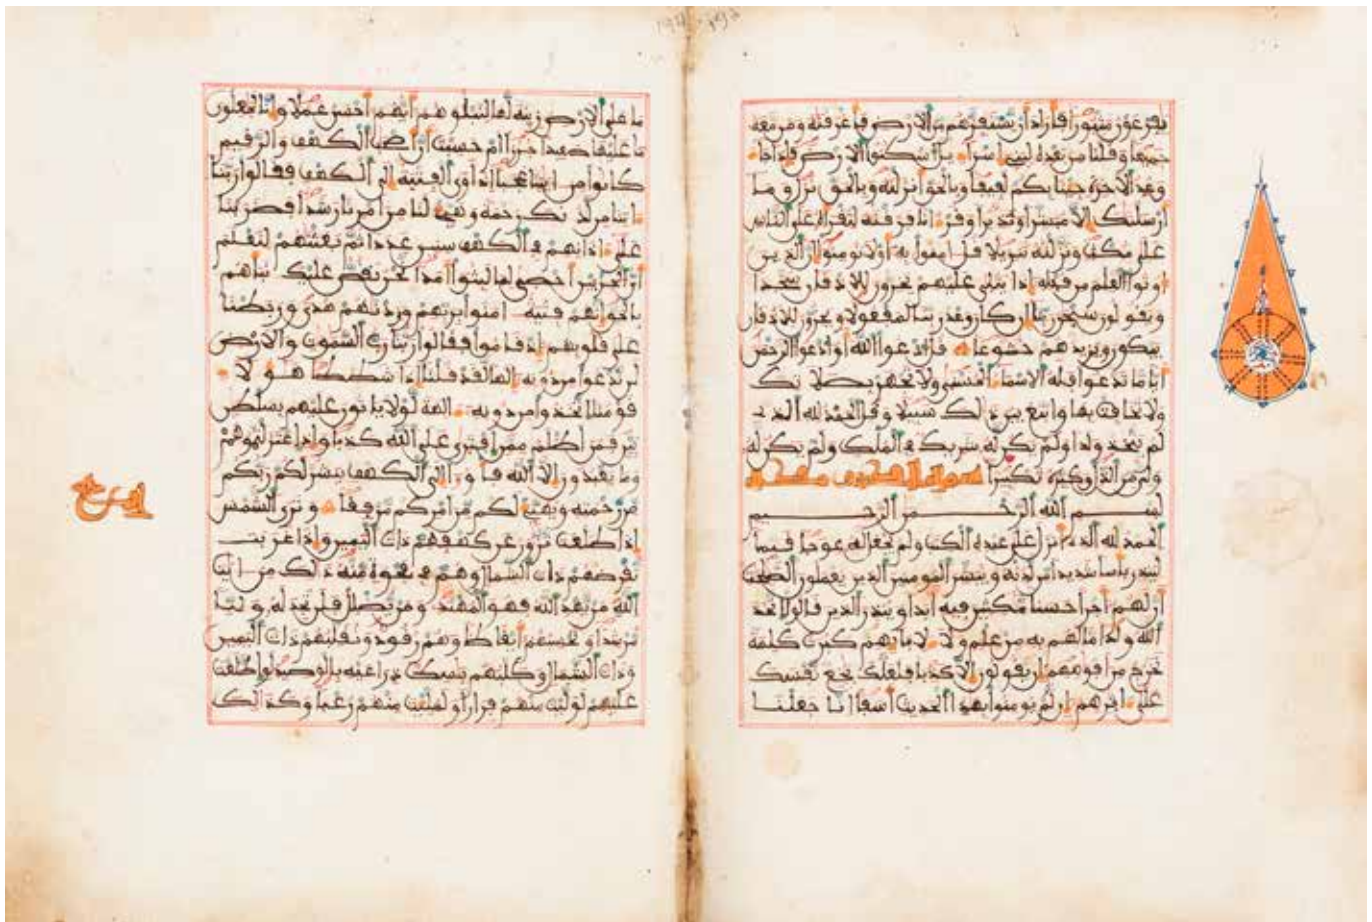 يفرعون مثبورا فأراد أن يستفزهم من الارض فأغرقنه ومن معه
جميعا وقلنا من بعده لبني إسراءيل اسكنوا الارض فإذا جاء
وعد الاخرة جئنا بكم لفيفا وبالحق أنزلنه وبالحق نزل وما
أرسلنك إلا مبشرا ونذيرا وقرءانا فرقنه لتقرأه على الناس
على مكث ونزلنه تنزيلا قل امنوا به أو لا تومنوا إن الذين
أوتوا العلم من قبله إذا يتلى عليهم يخرون للاذقان سجدا
ويقولون سبحن ربنا إن كان وعد ربنا لمفعولا ويخرون للاذقان
يبكون ويزيدهم خشوعا قل ادعوا الله أو ادعوا الرحمن
أيا ما تدعوا فله الاسماء الحسنى ولا تجهر بصلاتك
ولا تخافت بها وابتغ بين ذلك سبيلا وقل الحمد لله الذي
لم يتخذ ولدا ولم يكن له شريك في الملك ولم يكن له
ولي من الذل وكبره تكبيرا سورة الكهف مكية
بسم الله الرحمن الرحيم
الحمد لله الذي أنزل على عبده الكتب ولم يجعل له عوجا قيما
لينذر بأسا شديدا من لدنه ويبشر المومنين الذين يعملون الصلحت
أن لهم أجرا حسنا مكثين فيه أبدا وينذر الذين قالوا اتخذ
الله ولدا ما لهم به من علم ولا لابائهم كبرت كلمة
تخرج من افوههم إن يقولون إلا كذبا فلعلك بخع نفسك
على ءاثرهم إن لم يومنوا بهذا الحديث أسفا إنا جعلنا
ما على الارض زينة لها لنبلوهم أيهم أحسن عملا وإنا لجعلون
ما عليها صعيدا جرزا أم حسبت أن أصحب الكهف والرقيم
كانوا من ءايتنا عجبا إذ أوى الفتية إلى الكهف فقالوا ربنا
ءاتنا من لدنك رحمة وهيئ لنا من أمرنا رشدا فضربنا
على ءاذانهم في الكهف سنين عددا ثم بعثنهم لنعلم
أي الحزبين أحصى لما لبثوا أمدا نحن نقص عليك نبأهم
بالحق إنهم فتية ءامنوا بربهم وزدنهم هدى وربطنا
على قلوبهم إذ قاموا فقالوا ربنا رب السموت والارض
لن ندعوا من دونه إلها لقد قلنا إذا شططا هؤلاء
قومنا اتخذوا من دونه ءالهة لولا ياتون عليهم بسلطن
بين فمن أظلم ممن افترى على الله كذبا وإذ اعتزلتموهم
وما يعبدون إلا الله فأوا إلى الكهف ينشر لكم ربكم
من رحمته ويهيئ لكم من أمركم مرفقا وترى الشمس
إذا طلعت تزور عن كهفهم ذات اليمين وإذا غربت
تقرضهم ذات الشمال وهم في فجوة منه ذلك من ءايت
الله من يهد الله فهو المهتد ومن يضلل فلن تجد له وليا
مرشدا وتحسبهم أيقاظا وهم رقود ونقلبهم ذات اليمين
وذات الشمال وكلبهم بسط ذراعيه بالوصيد لو اطلعت
عليهم لوليت منهم فرارا ولملئت منهم رعبا وكذلك
ربع